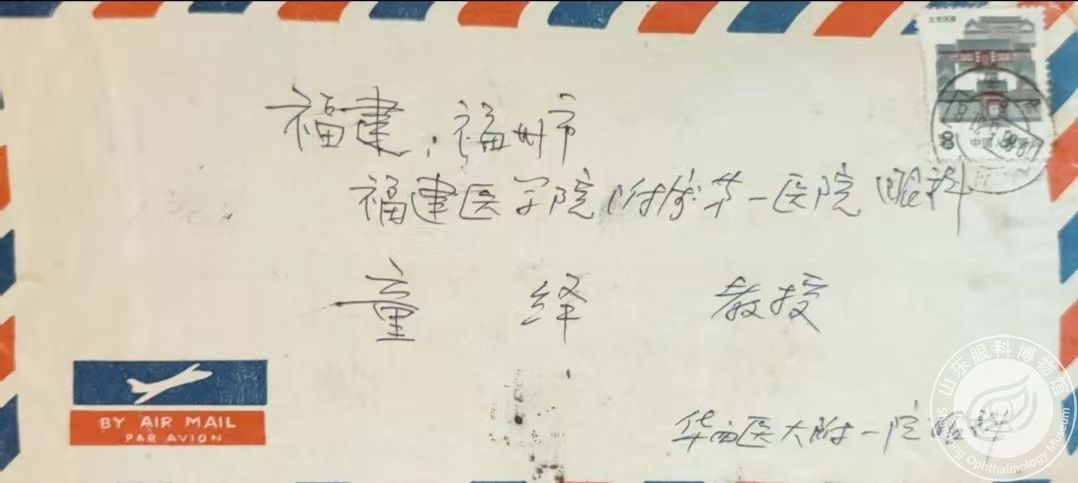 福建，福州市
福建医学院附属第一医院眼科
童 绎 教授
华西医大附一院眼科
BY AIR MAIL
PAR AVION
北京民居
8 中国人民邮政
山东眼科博物馆
Shandong Ophthalmology Museum